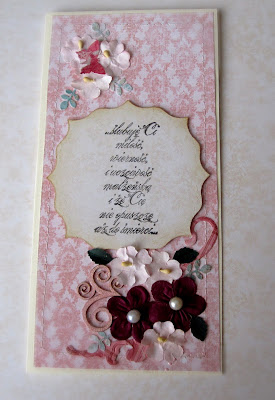 ...ślubuję Ci
miłość,
wierność,
i uczciwość
małżeńską
i że Ci
nie opuszczę
aż do śmierci...